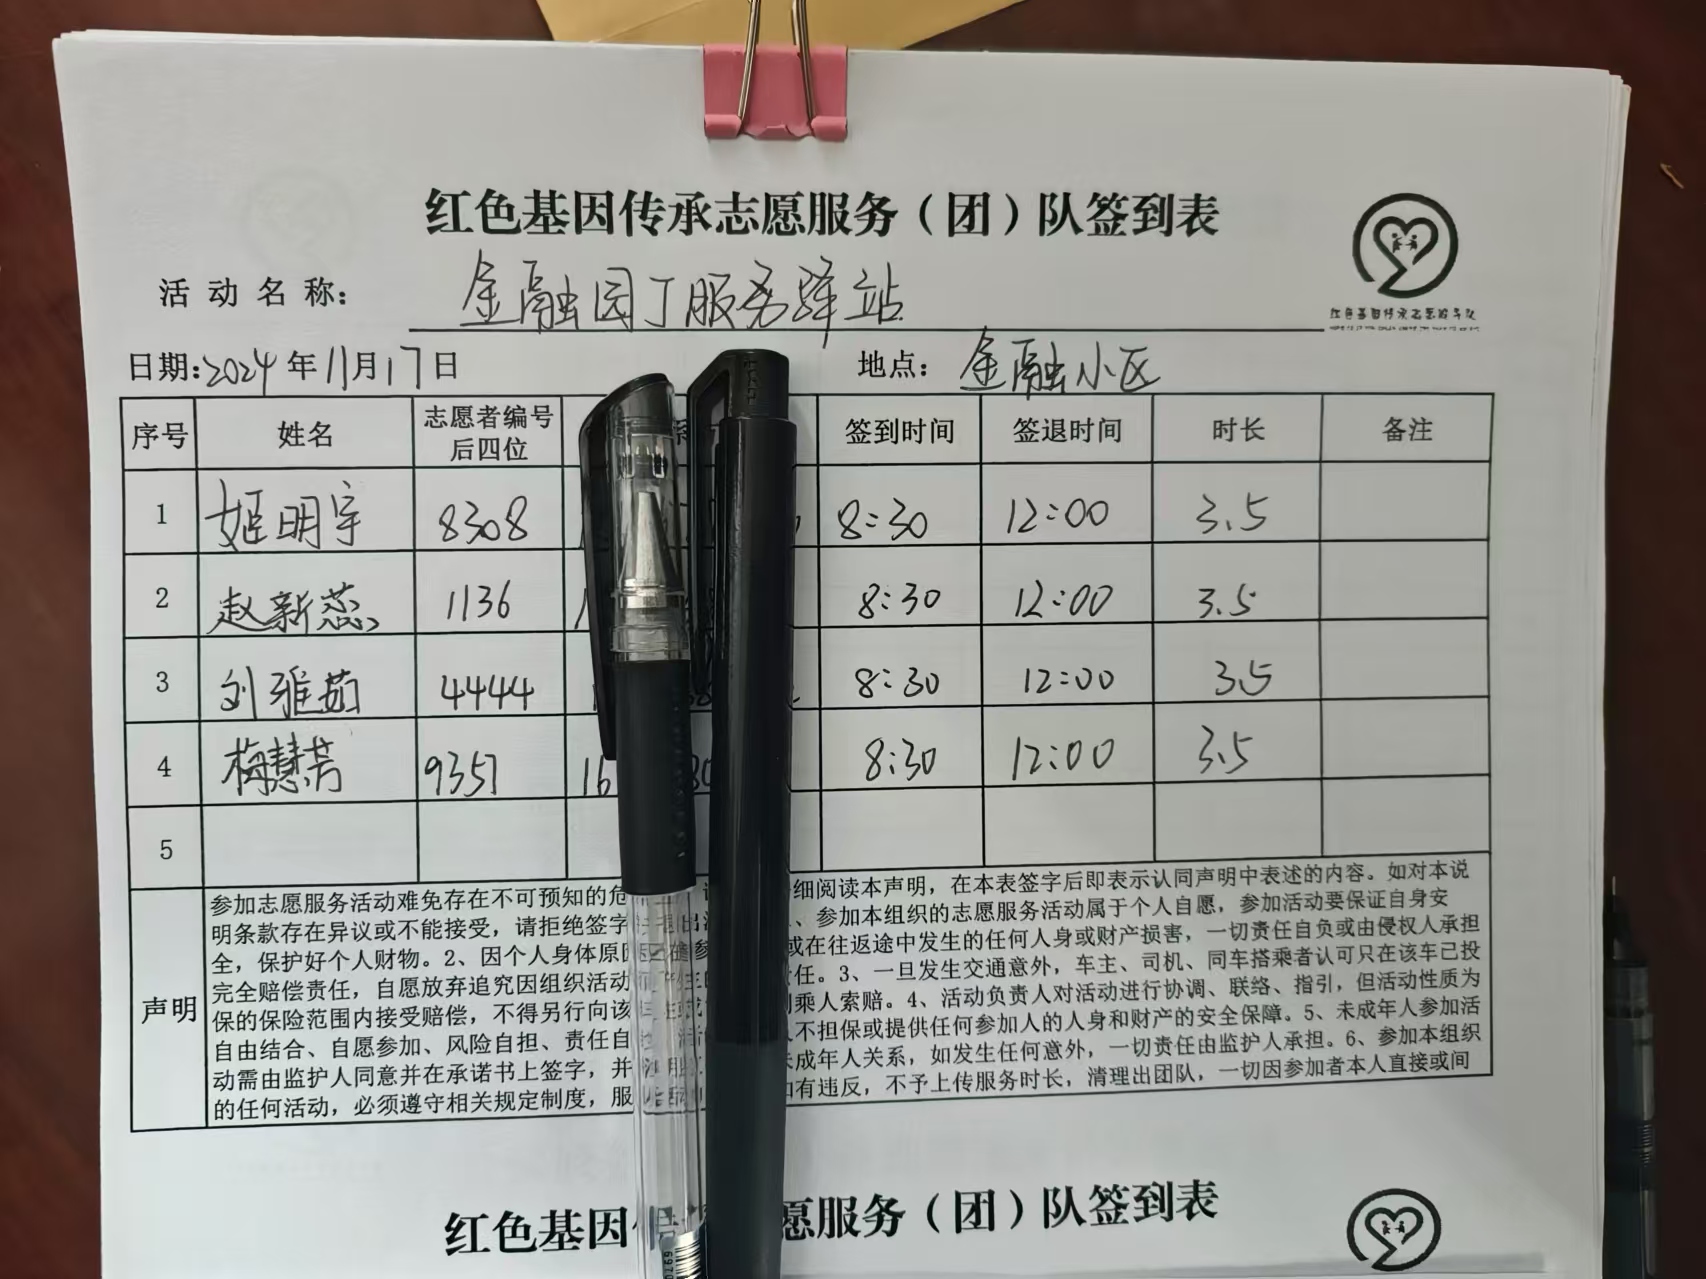 红色基因传承志愿服务（团）队签到表
活动名称： 金融园丁服务驿站
红色基因传承志愿服务队
日期:2024年11月17日 地点： 金融小区
序号 姓名 志愿者编号后四位 签到时间 签退时间 时长 备注
1 姬明宇 8308 8:30 12:00 3.5
2 赵新蕊 1136 8:30 12:00 3.5
3 刘雅茹 4444 8:30 12:00 3.5
4 梅慧芳 9357 16 8:30 12:00 3.5
5
声明
参加志愿服务活动难免存在不可预知的危 细阅读本声明，在本表签字后即表示认同声明中表述的内容。如对本说
明条款存在异议或不能接受，请拒绝签字 、参加本组织的志愿服务活动属于个人自愿，参加活动要保证自身安
全，保护好个人财物。2、因个人身体原 或在往返途中发生的任何人身或财产损害，一切责任自负或由侵权人承担
完全赔偿责任，自愿放弃追究因组织活动 责任。3、一旦发生交通意外，车主、司机、同车搭乘者认可只在该车已投
保的保险范围内接受赔偿，不得另行向该 乘人索赔。4、活动负责人对活动进行协调、联络、指引，但活动性质为
自由结合、自愿参加、风险自担、责任自 不担保或提供任何参加人的人身和财产的安全保障。5、未成年人参加活
动需由监护人同意并在承诺书上签字，并 未成年人关系，如发生任何意外，一切责任由监护人承担。6、参加本组织
的任何活动，必须遵守相关规定制度，服 如有违反，不予上传服务时长，清理出团队，一切因参加者本人直接或间
红色基因 愿服务（团）队签到表